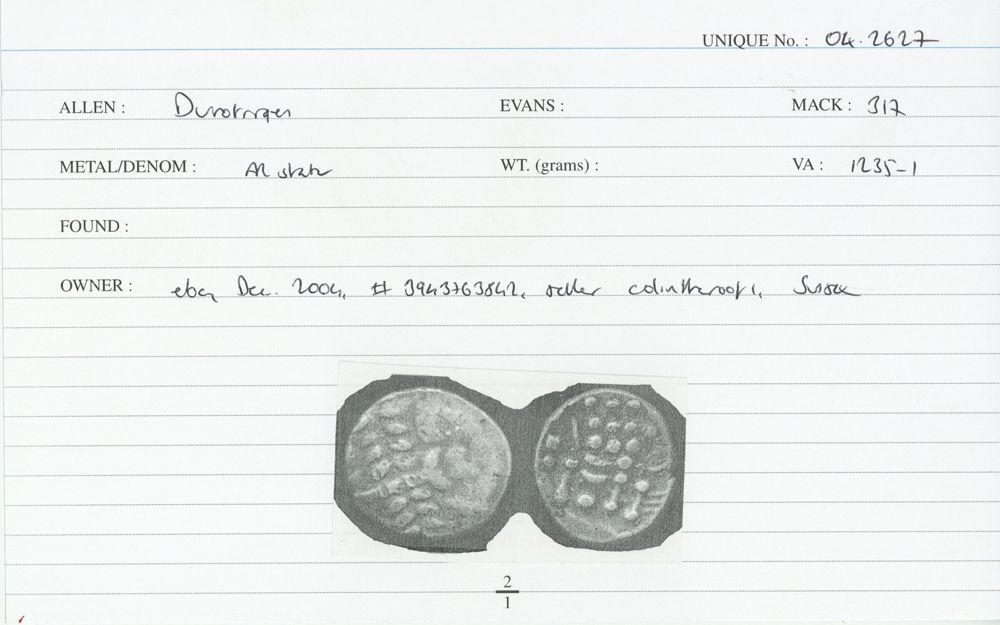 UNIQUE No. : 04.2627
ALLEN : Durotriges EVANS : MACK : 317
METAL/DENOM : AR stater WT. (grams) : VA : 1235-1
FOUND :
OWNER : ebay Dec. 2004, # 3943763842, seller colintheroof1, Sussex
2
1